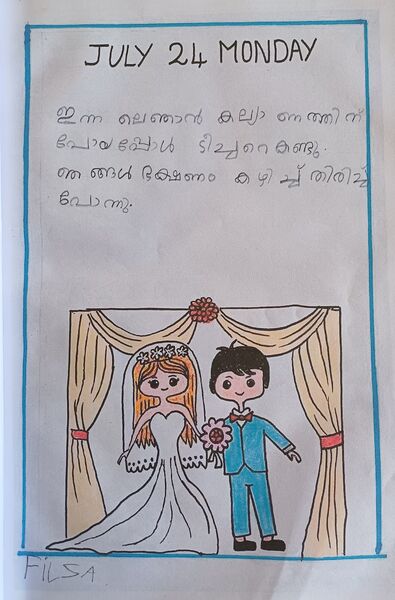 JULY 24 MONDAY
ഇന്ന ലെഞാൻ കല്യാ ണത്തിന്
പോയപ്പോൾ ടീച്ചറെ കണ്ടു.
ഞ ങ്ങൾ ഭക്ഷണം കഴി ച്ച് തിരിച്ച്
പോന്നു.
FILSA